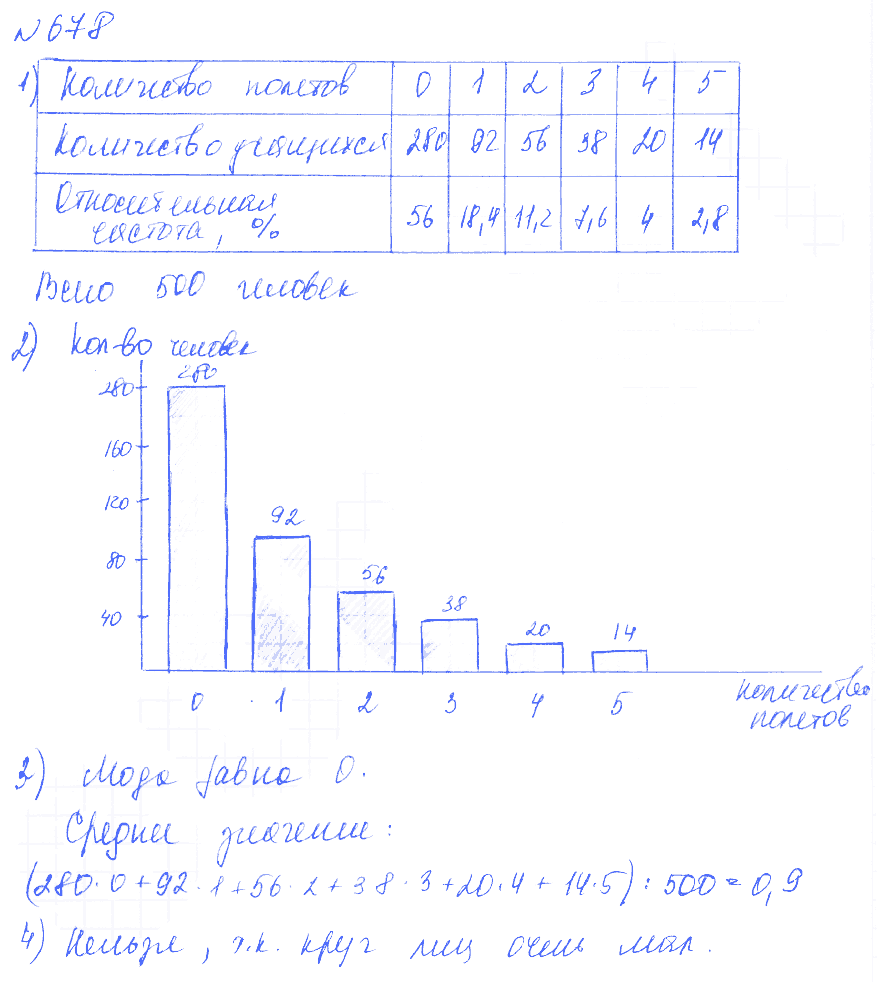 №678
1) Количество полетов 0 1 2 3 4 5
Количество учащихся 280 92 56 38 20 14
Относительная
частота, % 56 18,4 11,2 7,6 4 2,8
Всего 500 человек
2) Кол-во человек
280
280
160
120
80
40
92
56
38
20
14
0 1 2 3 4 5
количество
полетов
3) Мода равна 0.
Среднее значение:
(280·0+92·1+56·2+38·3+20·4+14·5):500=0,9
4) Нельзя, т.к. круг лиц очень мал.